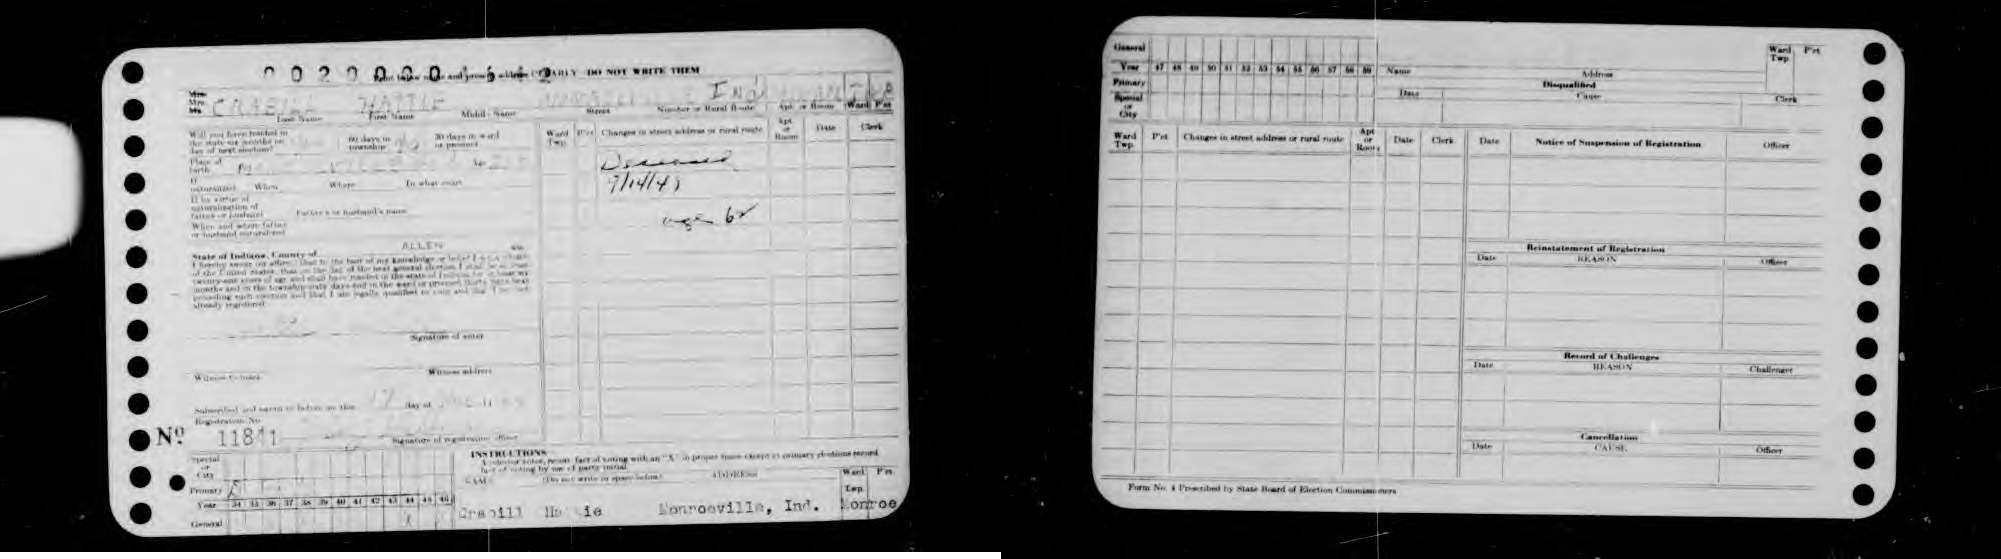 0020000 1542
Print below name and press address CLEARLY DO NOT WRITE THEM
Mrs.
CRABILL HATTIE MONROEVILLE IND MONROE TWP
Last Name First Name Middle Name Street Number or Rural Route Apt. or Room Ward P'ct
Will you have resided in the state six months on day of next election? 60 days in township 30 days in ward or precinct
Place of birth
Ward Twp. P'ct Changes in street address or rural route Apt. or Room Date Clerk
Deceased
age 62
If naturalized When Where In what court
If by virtue of naturalization of father or husband Father's or husband's name
When and where father or husband naturalized
State of Indiana, County of ALLEN
I hereby swear (or affirm) that to the best of my knowledge or belief I am a citizen
of the United States, that on the day of the next general election I shall be at least
twenty-one years of age and shall have resided in the state of Indiana for at least six
months and in the township sixty days and in the ward or precinct thirty days next
preceding such election and that I am legally qualified to vote and that I am not
already registered
Signature of voter
Witness to mark Witness address
Subscribed and sworn to before me this 17 day of
Registration No.
Nº 11841
Signature of registration officer
INSTRUCTIONS
As elector votes, record fact of voting with an "X" in proper space except at primary elections record
fact of voting by use of party initial
NAME (Do not write in space below) ADDRESS Ward Twp. P'ct.
Special or City
Primary R
Year 34 35 36 37 38 39 40 41 42 43 44 45 46
General X
Crabill Hattie Monroeville, Ind. Monroe
General
Year 47 48 49 50 51 52 53 54 55 56 57 58 59
Primary
Special or City
Name Address Ward Twp. P'ct
Disqualified
Date Cause Clerk
Ward Twp. P'ct Changes in street address or rural route Apt or Room Date Clerk
Date Notice of Suspension of Registration Officer
Reinstatement of Registration
Date REASON Officer
Record of Challenges
Date REASON Challenger
Cancellation
Date CAUSE Officer
Form No. 4 Prescribed by State Board of Election Commissioners